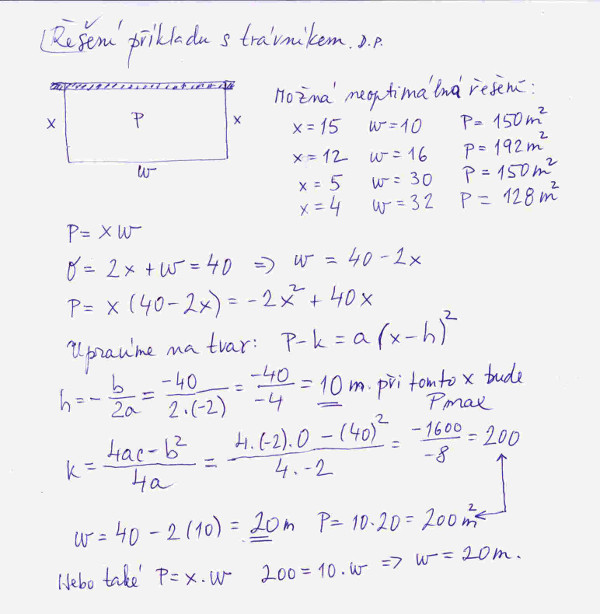 Řešení příkladu s trávníkem. D.P.
x P x
w
Možná neoptimálná řešení:
x=15 w=10 P=150m²
x=12 w=16 P=192m²
x=5 w=30 P=150m²
x=4 w=32 P=128m²
P=xw
σ=2x+w=40 => w=40-2x
P=x(40-2x)=-2x²+40x
Upravíme na tvar: P-k=a(x-h)²
h=-b/2a=-40/2.(-2)=-40/-4=10m. při tomto x bude
Pmax
k=4ac-b²/4a=4.(-2).0-(40)²/4.-2=-1600/-8=200
w=40-2(10)=20m P=10.20=200m²
Nebo také P=x.w 200=10.w => w=20m.